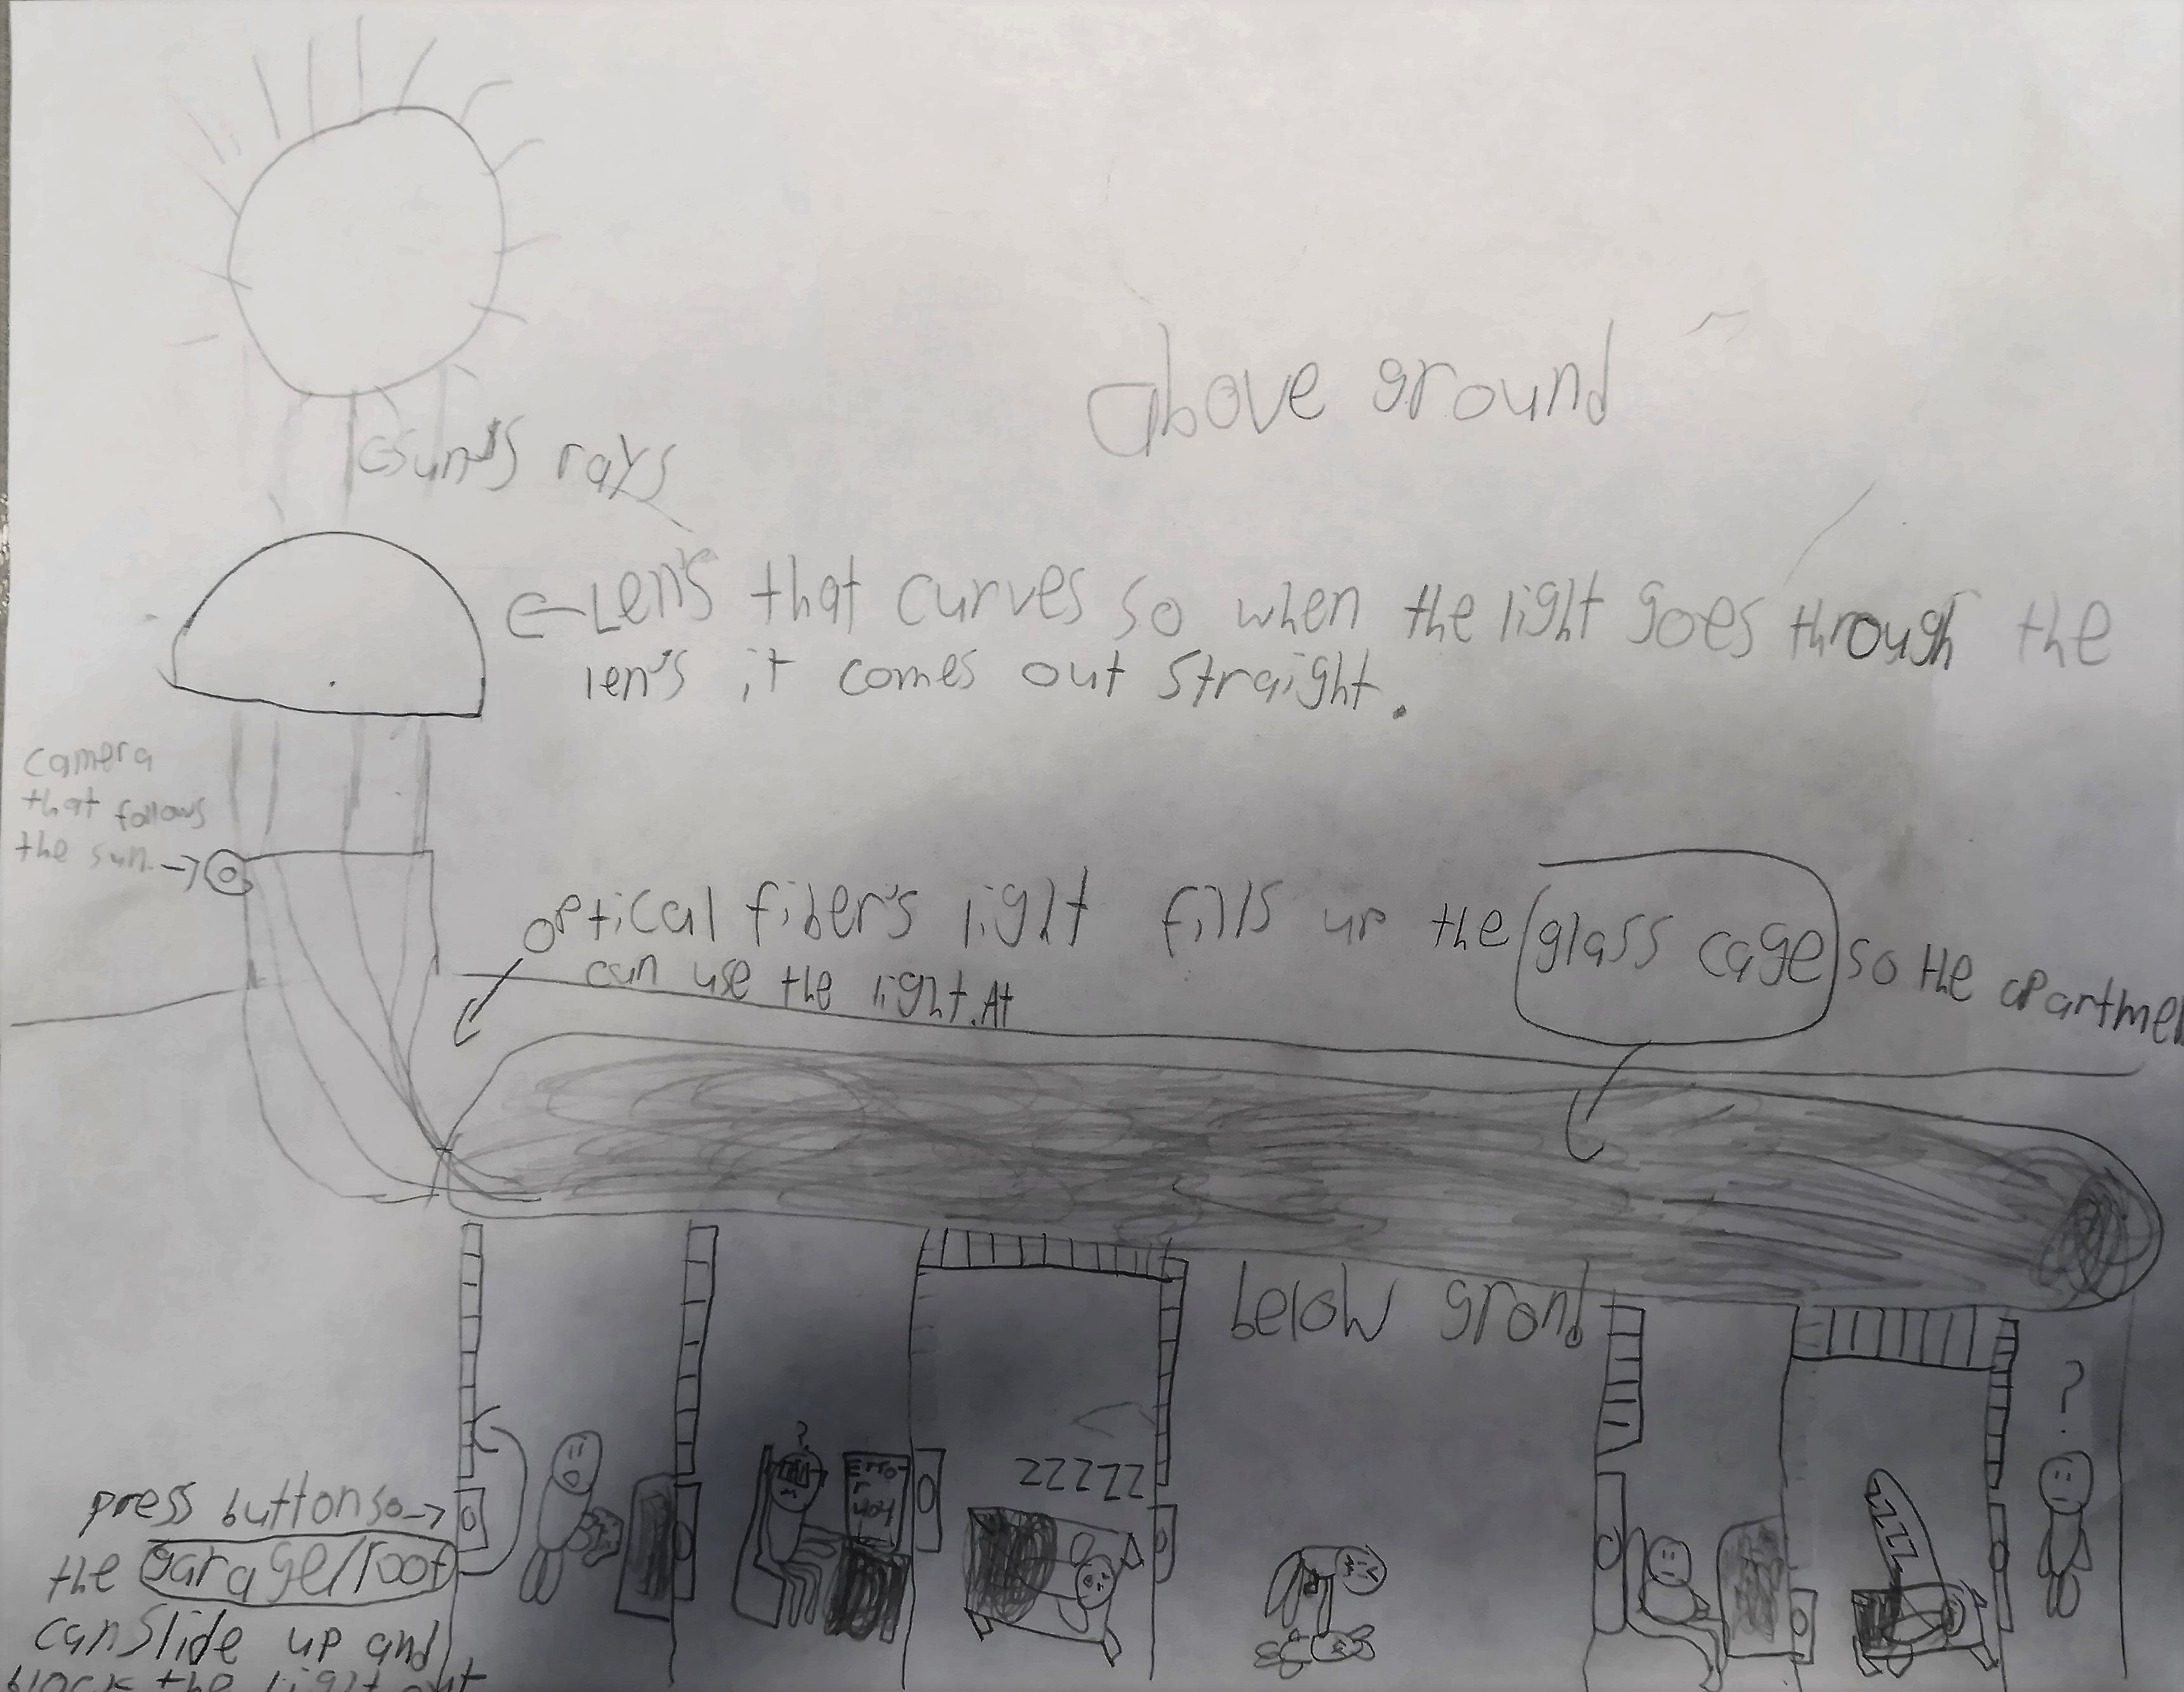 sun's rays
above ground
Len's that curves so when the light goes through the
len's it comes out straight.
camera
that follows
the sun.
optical fiber's light fills up the glass cage so the apartme
can use the light. At
below grond
?
Erro
r
404
ZZZZZ
ZZZ
?
press button so
the garage/roof
can slide up and
block the light out